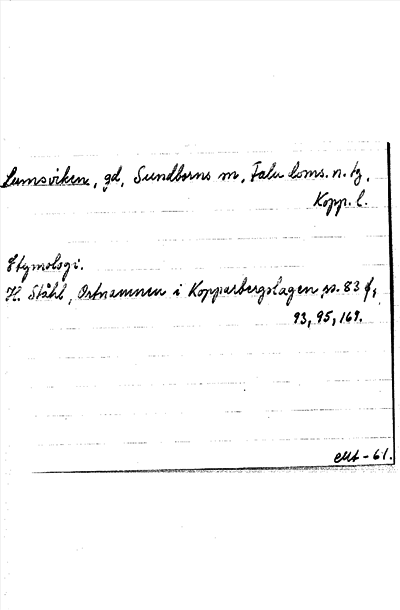 Lumsviken, gd, Sundborns sn, Falu doms. n. tg,
Kopp. l.
Etymologi.
H. Ståhl, Ortnamnen i Kopparbergslagen, ss. 83 f,
93, 95, 169.
-61.